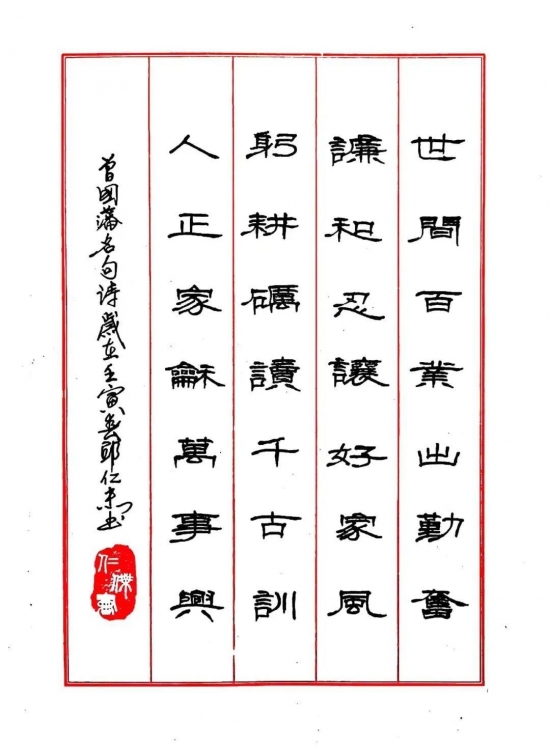 世間百業出勤奮
謙和忍讓好家風
躬耕礪讀千古訓
人正家龢萬事興
曾国藩名句诗歲在壬寅郎仁书
仁